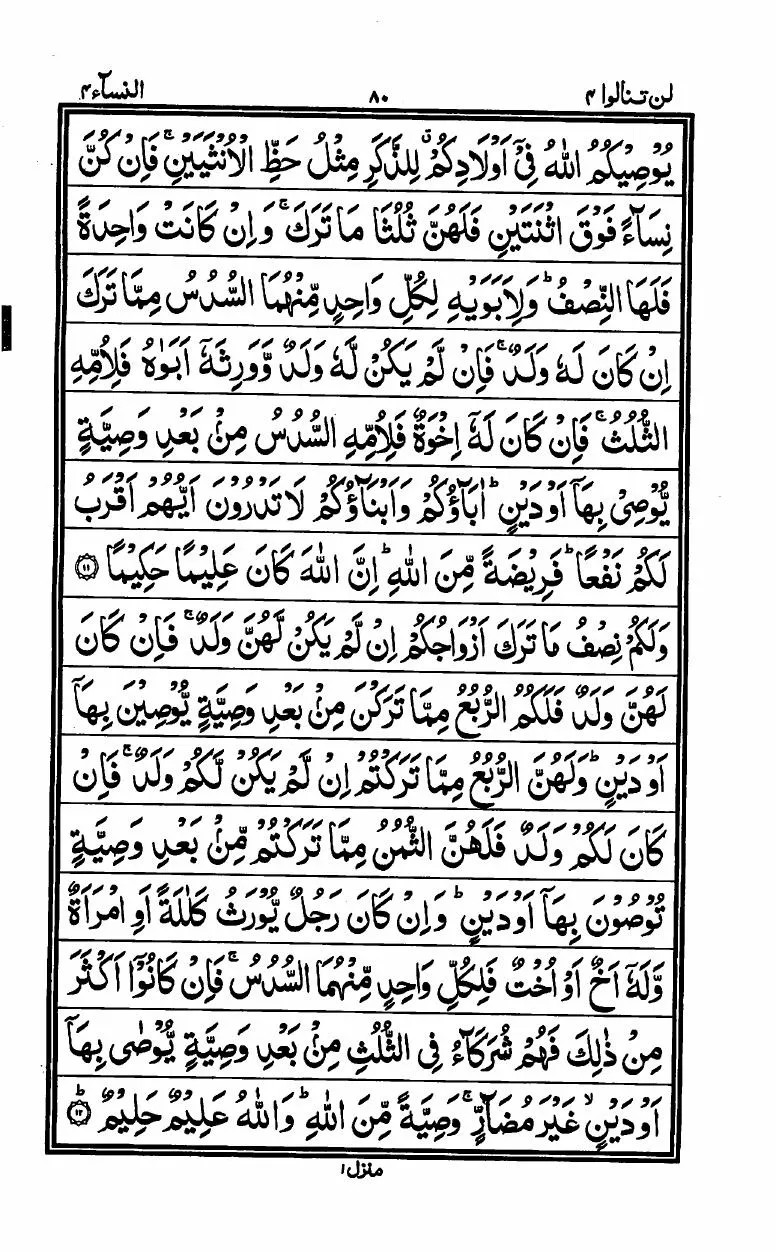 لن تنالوا ٤ ٨٠ النسآء ٤
يُوْصِيْكُمُ اللّٰهُ فِيْۤ اَوْلَادِكُمْ ۗ لِلذَّكَرِ مِثْلُ حَظِّ الْاُنْثَيَيْنِ ۚ فَاِنْ كُنَّ
نِسَآءً فَوْقَ اثْنَتَيْنِ فَلَهُنَّ ثُلُثَا مَا تَرَكَ ۚ وَاِنْ كَانَتْ وَاحِدَةً
فَلَهَا النِّصْفُ ؕ وَلِاَبَوَيْهِ لِكُلِّ وَاحِدٍ مِّنْهُمَا السُّدُسُ مِمَّا تَرَكَ
اِنْ كَانَ لَهٗ وَلَدٌ ۚ فَاِنْ لَّمْ يَكُنْ لَّهٗ وَلَدٌ وَّوَرِثَهٗۤ اَبَوٰهُ فَلِاُمِّهِ
الثُّلُثُ ۚ فَاِنْ كَانَ لَهٗۤ اِخْوَةٌ فَلِاُمِّهِ السُّدُسُ مِنْۢ بَعْدِ وَصِيَّةٍ
يُّوْصِيْ بِهَاۤ اَوْ دَيْنٍ ؕ اٰبَآؤُكُمْ وَاَبْنَآؤُكُمْ لَا تَدْرُوْنَ اَيُّهُمْ اَقْرَبُ
لَكُمْ نَفْعًا ؕ فَرِيْضَةً مِّنَ اللّٰهِ ؕ اِنَّ اللّٰهَ كَانَ عَلِيْمًا حَكِيْمًا ١١
وَلَكُمْ نِصْفُ مَا تَرَكَ اَزْوَاجُكُمْ اِنْ لَّمْ يَكُنْ لَّهُنَّ وَلَدٌ ۚ فَاِنْ كَانَ
لَهُنَّ وَلَدٌ فَلَكُمُ الرُّبُعُ مِمَّا تَرَكْنَ مِنْۢ بَعْدِ وَصِيَّةٍ يُّوْصِيْنَ بِهَاۤ
اَوْ دَيْنٍ ؕ وَلَهُنَّ الرُّبُعُ مِمَّا تَرَكْتُمْ اِنْ لَّمْ يَكُنْ لَّكُمْ وَلَدٌ ۚ فَاِنْ
كَانَ لَكُمْ وَلَدٌ فَلَهُنَّ الثُّمُنُ مِمَّا تَرَكْتُمْ مِّنْۢ بَعْدِ وَصِيَّةٍ
تُوْصُوْنَ بِهَاۤ اَوْ دَيْنٍ ؕ وَاِنْ كَانَ رَجُلٌ يُّوْرَثُ كَلٰلَةً اَوِ امْرَاَةٌ
وَّلَهٗۤ اَخٌ اَوْ اُخْتٌ فَلِكُلِّ وَاحِدٍ مِّنْهُمَا السُّدُسُ ۚ فَاِنْ كَانُوْۤا اَكْثَرَ
مِنْ ذٰلِكَ فَهُمْ شُرَكَآءُ فِي الثُّلُثِ مِنْۢ بَعْدِ وَصِيَّةٍ يُّوْصٰى بِهَاۤ
اَوْ دَيْنٍ ۙ غَيْرَ مُضَآرٍّ ۚ وَصِيَّةً مِّنَ اللّٰهِ ؕ وَاللّٰهُ عَلِيْمٌ حَلِيْمٌ ؕ ١٢
منزل ١